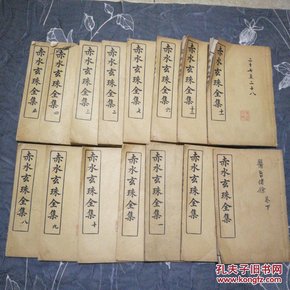 赤水玄珠全集 五
赤水玄珠全集 四
赤水玄珠全集 三
赤水玄珠全集 二
赤水玄珠全集 七
赤水玄珠全集 六
赤水玄珠全集 十二
赤水玄珠全集 十一
二十四至二十八
赤水玄珠全集 八
赤水玄珠全集 九
赤水玄珠全集 十
赤水玄珠全集
赤水玄珠全集 一
赤水玄珠全集
醫旨緒餘 卷下
孔夫子旧书网